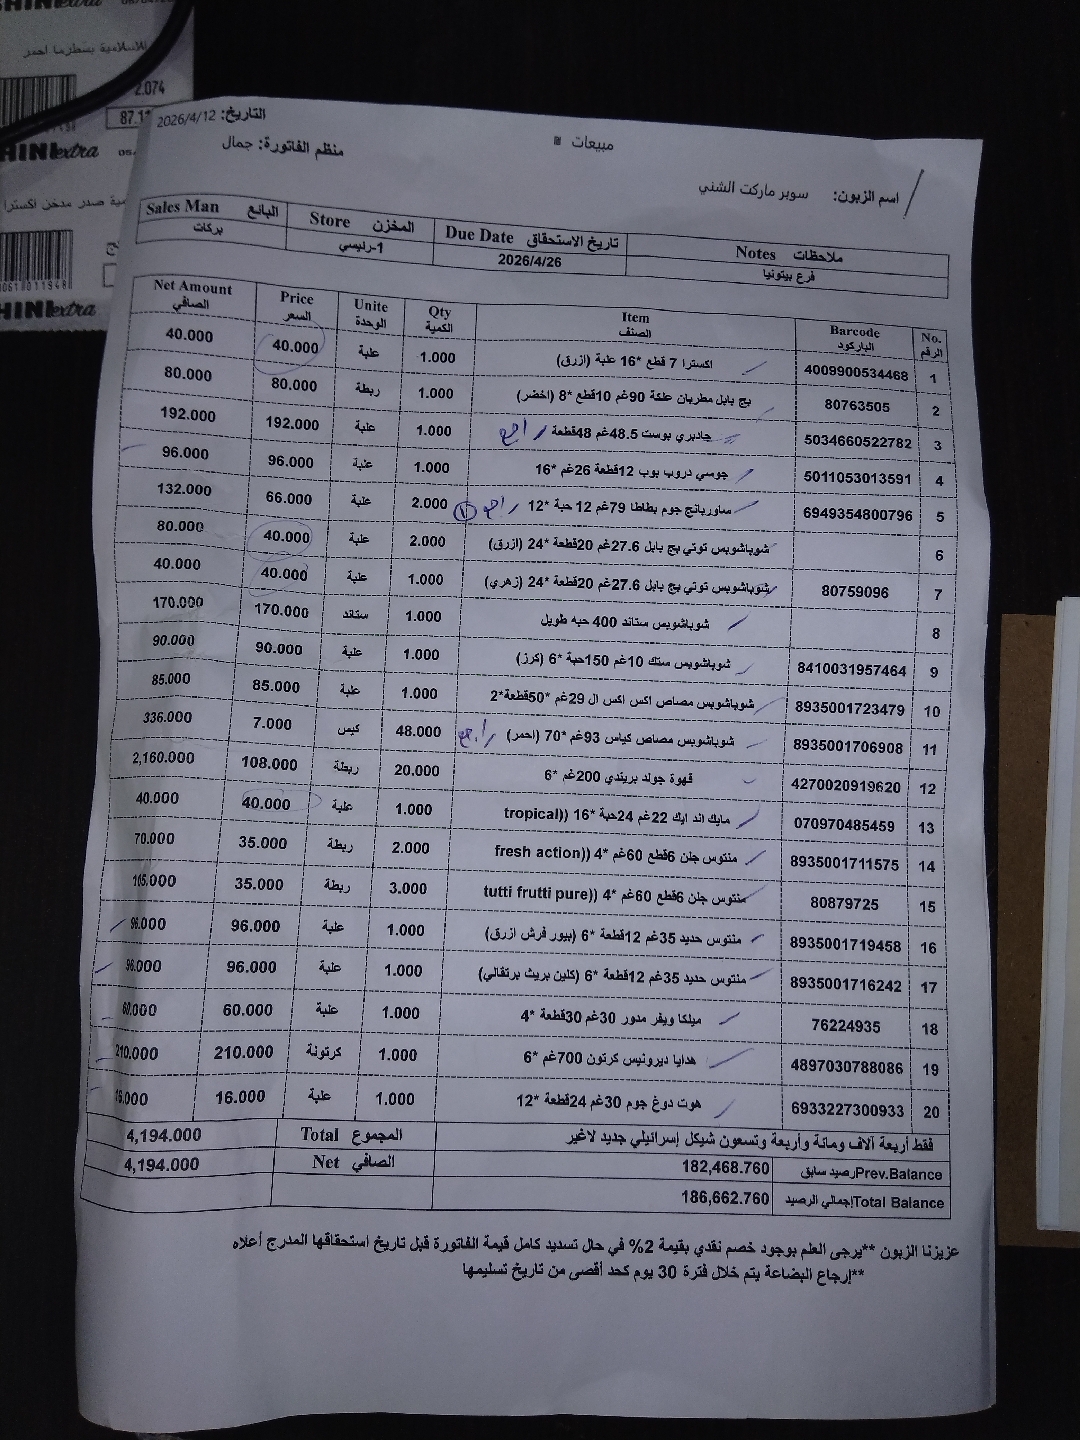 extra
للاسلامية بسطرما احمر
2.074
HINI extra
ية صدر مدخن اكسترا
HINI extra
التاريخ: 2026/4/12
مبيعات
منظم الفاتورة: جمال
اسم الزبون: سوبر ماركت الشني
ملاحظات Notes | تاريخ الاستحقاق Due Date | المخزن Store | البائع Sales Man
فرع بيتونيا | 2026/4/26 | 1-رئيسي | بركات
No. الرقم | Barcode الباركود | Item الصنف | Qty الكمية | Unite الوحدة | Price السعر | Net Amount الصافي
1 | 4009900534468 | اكسترا 7 قطع *16 علبة (ازرق) | 1.000 | علبة | 40.000 | 40.000
2 | 80763505 | بج بابل مطربان علكة 90غم 10قطع *8 (اخضر) | 1.000 | ربطة | 80.000 | 80.000
3 | 5034660522782 | جادبري بوست 48.5غم 48قطعة راجع | 1.000 | علبة | 192.000 | 192.000
4 | 5011053013591 | جومي دروب بوب 12قطعة 26غم *16 | 1.000 | علبة | 96.000 | 96.000
5 | 6949354800796 | ساوربانج جوم بطاطا 79غم 12 حبة *12 راجع | 2.000 | علبة | 66.000 | 132.000
6 | شوباشوبس توتي بج بابل 27.6غم 20قطعة *24 (ازرق) | 2.000 | علبة | 40.000 | 80.000
7 | 80759096 | شوباشوبس توتي بج بابل 27.6غم 20قطعة *24 (زهري) | 1.000 | علبة | 40.000 | 40.000
8 | شوباشوبس ستاند 400 حبه طويل | 1.000 | ستاند | 170.000 | 170.000
9 | 8410031957464 | شوباشوبس ستك 10غم 150حبة *6 (كرز) | 1.000 | علبة | 90.000 | 90.000
10 | 8935001723479 | شوباشوبس مصاص اكس اكس ال 29غم *50قطعة*2 | 1.000 | علبة | 85.000 | 85.000
11 | 8935001706908 | شوباشوبس مصاص كياس 93غم *70 (احمر) راجع | 48.000 | كيس | 7.000 | 336.000
12 | 4270020919620 | قهوة جولد بريندي 200غم *6 | 20.000 | ربطة | 108.000 | 2,160.000
13 | 070970485459 | مايك اند ايك 22غم 24حبة *16 ((tropical | 1.000 | علبة | 40.000 | 40.000
14 | 8935001711575 | منتوس جلن 6قطع 60غم *4 ((fresh action | 2.000 | ربطة | 35.000 | 70.000
15 | 80879725 | منتوس جلن 6قطع 60غم *4 ((tutti frutti pure | 3.000 | ربطة | 35.000 | 105.000
16 | 8935001719458 | منتوس حديد 35غم 12قطعة *6 (بيور فرش ازرق) | 1.000 | علبة | 96.000 | 96.000
17 | 8935001716242 | منتوس حديد 35غم 12قطعة *6 (كلين بريث برتقالي) | 1.000 | علبة | 96.000 | 96.000
18 | 76224935 | ميلكا ويفر مدور 30غم 30قطعة *4 | 1.000 | علبة | 60.000 | 60.000
19 | 4897030788086 | هدايا ديرونيس كرتون 700غم *6 | 1.000 | كرتونة | 210.000 | 210.000
20 | 6933227300933 | هوت دوغ جوم 30غم 24قطعة *12 | 1.000 | علبة | 16.000 | 16.000
فقط أربعة آلاف ومائة وأربعة وتسعون شيكل إسرائيلي جديد لاغير | المجموع Total | 4,194.000
Prev.Balance رصيد سابق | 182,468.760 | الصافي Net | 4,194.000
Total Balance إجمالي الرصيد | 186,662.760
عزيزنا الزبون **يرجى العلم بوجود خصم نقدي بقيمة 2% في حال تسديد كامل قيمة الفاتورة قبل تاريخ استحقاقها المدرج أعلاه
**إرجاع البضاعة يتم خلال فترة 30 يوم كحد أقصى من تاريخ تسليمها